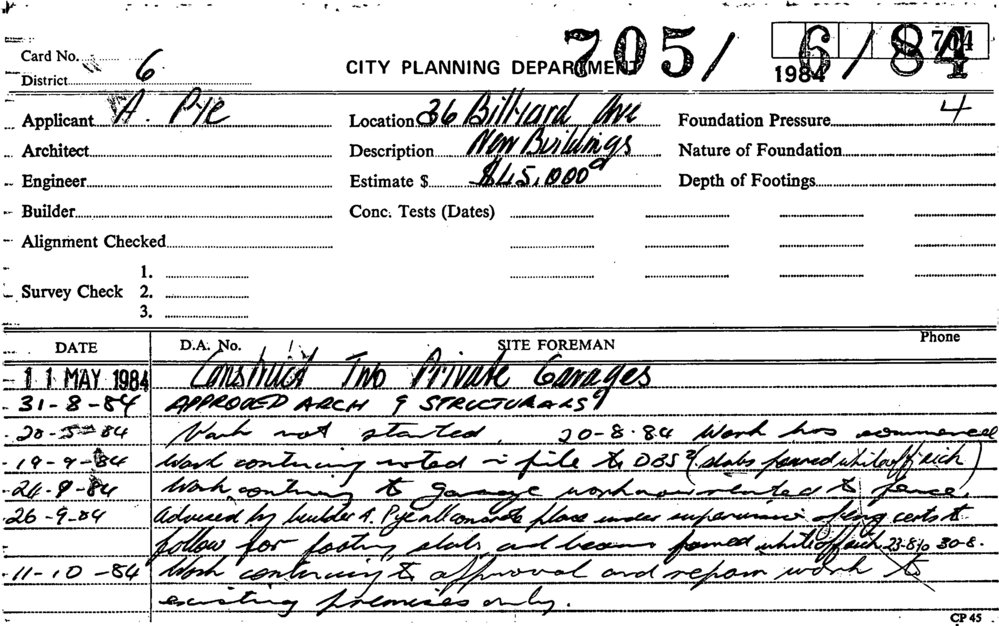 Card No.
District 6
CITY PLANNING DEPARTMENT
705/ 6/84
704
1984
Applicant A. Pye
Location 36 Billyard Ave
Foundation Pressure 4
Architect
Description New Buildings
Nature of Foundation
Engineer
Estimate $ $45,000
Depth of Footings
Builder
Conc. Tests (Dates)
Alignment Checked
Survey Check 1.
2.
3.
DATE D.A. No. SITE FOREMAN Phone
11 MAY 1984 Construct Two Private Garages
31-8-84 APPROVED ARCH & STRUCTURALS
20-5-84 Work not started. 20-8-84 Work has commenced
19-9-84 Work continuing noted in file to DBS (slabs poured while off sick)
24-9-84 Work continuing to garage work now related to fence.
26-9-84 Advised by builder A. Pye all concrete place under supervision of eng certs to
follow for footing, slabs, and beams poured while off sick 23-8 to 30-8.
11-10-84 Work continuing to approval and repair work to
existing premises only.
CP 45